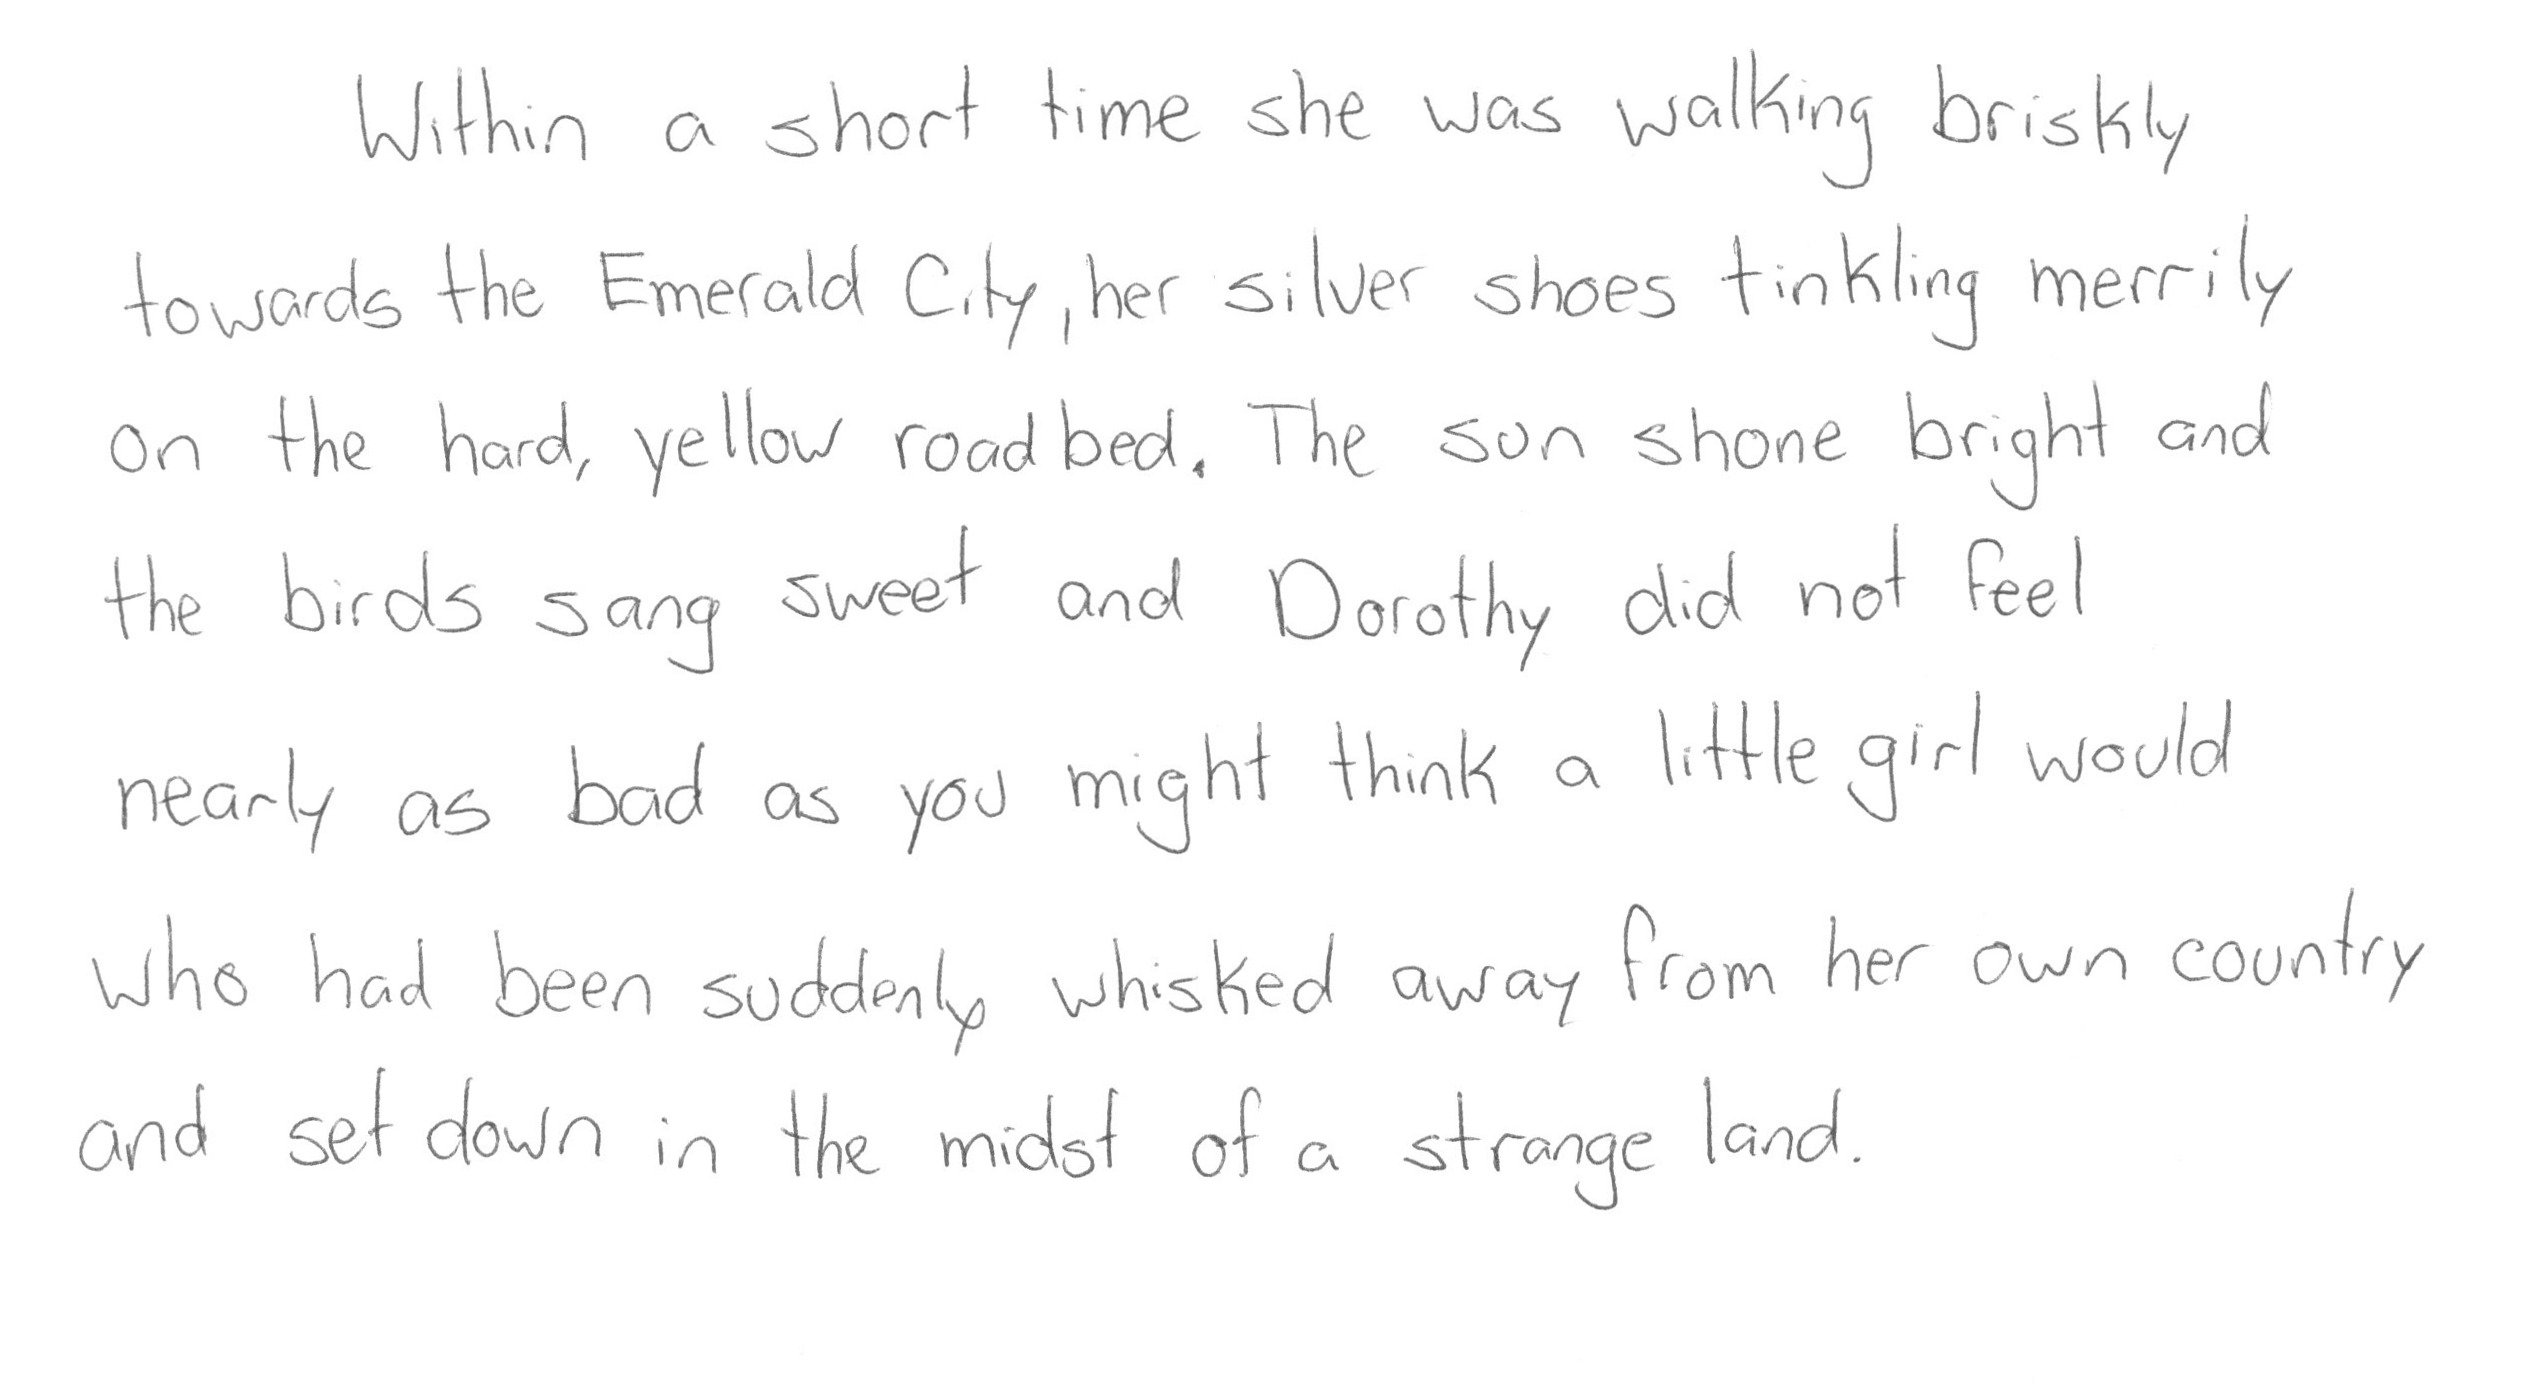 Within a short time she was walking briskly
towards the Emerald City, her silver shoes tinkling merrily
on the hard, yellow roadbed. The sun shone bright and
the birds sang sweet and Dorothy did not feel
nearly as bad as you might think a little girl would
who had been suddenly whisked away from her own country
and set down in the midst of a strange land.